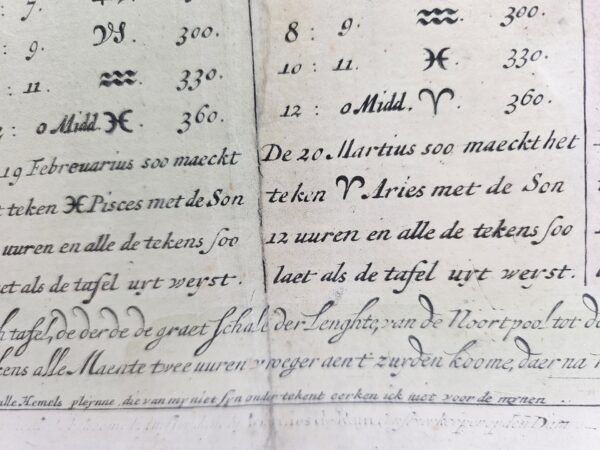 7. 300.
: 9. ♑. 300.
: 11. ♒. 330.
: 0 Midd. ♓. 360.
19 Februarius soo maeckt
teken ♓ Pisces met de Son
uuren en alle de tekens soo
laet als de tafel uyt weyst.
♒. 300.
8 : 9.
10 : 11. ♓. 330.
12 : 0 Midd. ♈. 360.
De 20 Martius soo maeckt het
teken ♈ Aries met de Son
12 uuren en alle de tekens soo
laet als de tafel uyt weyst.
tafel, de derde de graet schale der Lenghte, van de Noortpool tot d
kens alle Maente twee uuren vroeger aent zurden koome, daer na
alle Hemels pleynne, die van my niet syn onder tekent eerken ick niet voor de mynen